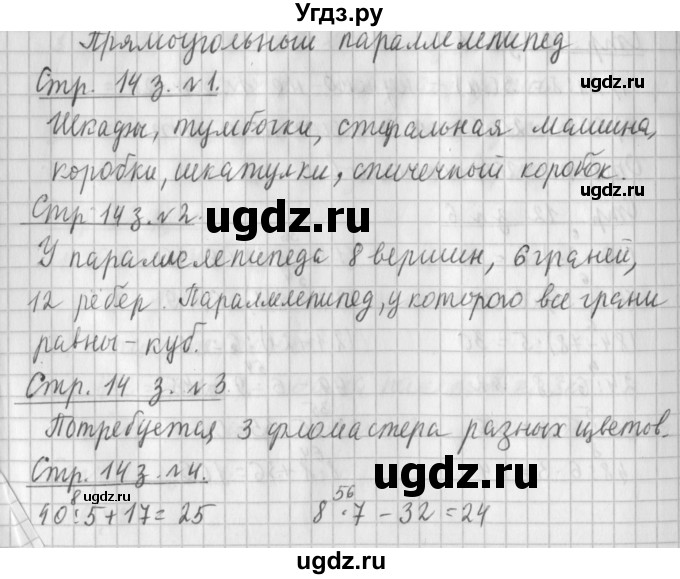 Угдз.ру
Прямоугольный параллелепипед
Стр. 14 з. №1.
Шкафы, тумбочки, стиральная машина,
коробки, шкатулки, спичечный коробок.
Стр 14 з. №2.
У параллелепипеда 8 вершин, 6 граней,
12 рёбер. Параллелепипед, у которого все грани
равны - куб.
Стр. 14 з. №3.
Потребуется 3 фломастера разных цветов.
Стр. 14 з. №4.
8 56
40:5+17=25 8·7-32=24
ugdz.ru
ugdz.ru
ugdz.ru
ugdz.ru
ugdz.ru
ugdz.ru
ugdz.ru
ugdz.ru
Угдз.ру